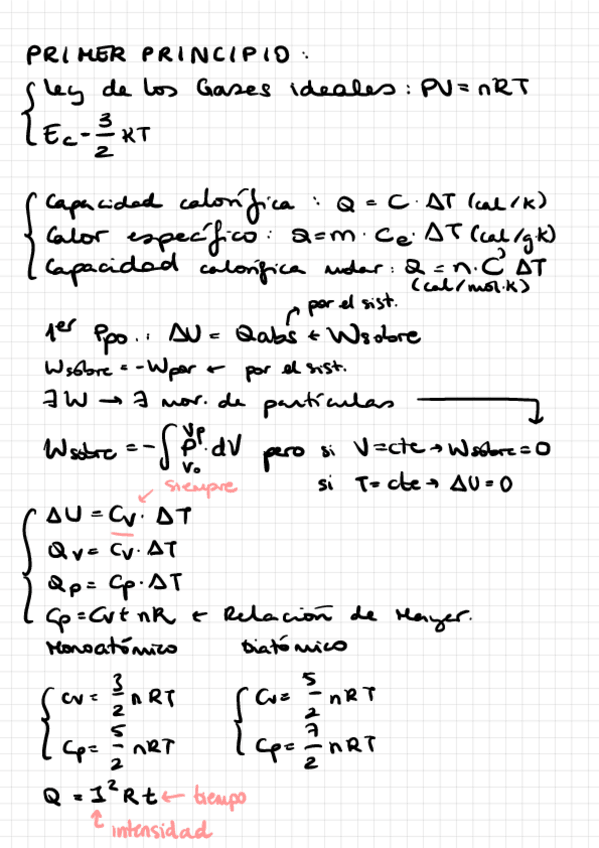 PRIMER PRINCIPIO:
Ley de los Gases ideales: PV = nRT
Ec - 3/2 KT
Capacidad calorífica: Q = C · ΔT (cal/K)
Calor específico: Q = m · Ce · ΔT (cal/g·K)
Capacidad calorífica molar: Q = n · C' ΔT
(cal/mol·K)
por el sist.
1er Ppo.: ΔU = Qabs + Wsobre
Wsobre = -Wpor ← por el sist.
∃ W → ∃ mov. de partículas
Wsobre = -∫V₀^VF P · dV pero si V = cte → Wsobre = 0
si T = cte → ΔU = 0
siempre
ΔU = Cv · ΔT
Qv = Cv · ΔT
Qp = Cp · ΔT
Cp = Cv + nR ← Relación de Mayer.
Monoatómico Diatómico
Cv = 3/2 nRT Cv = 5/2 nRT
Cp = 5/2 nRT Cp = 7/2 nRT
Q = I² R t ← tiempo
↑ intensidad